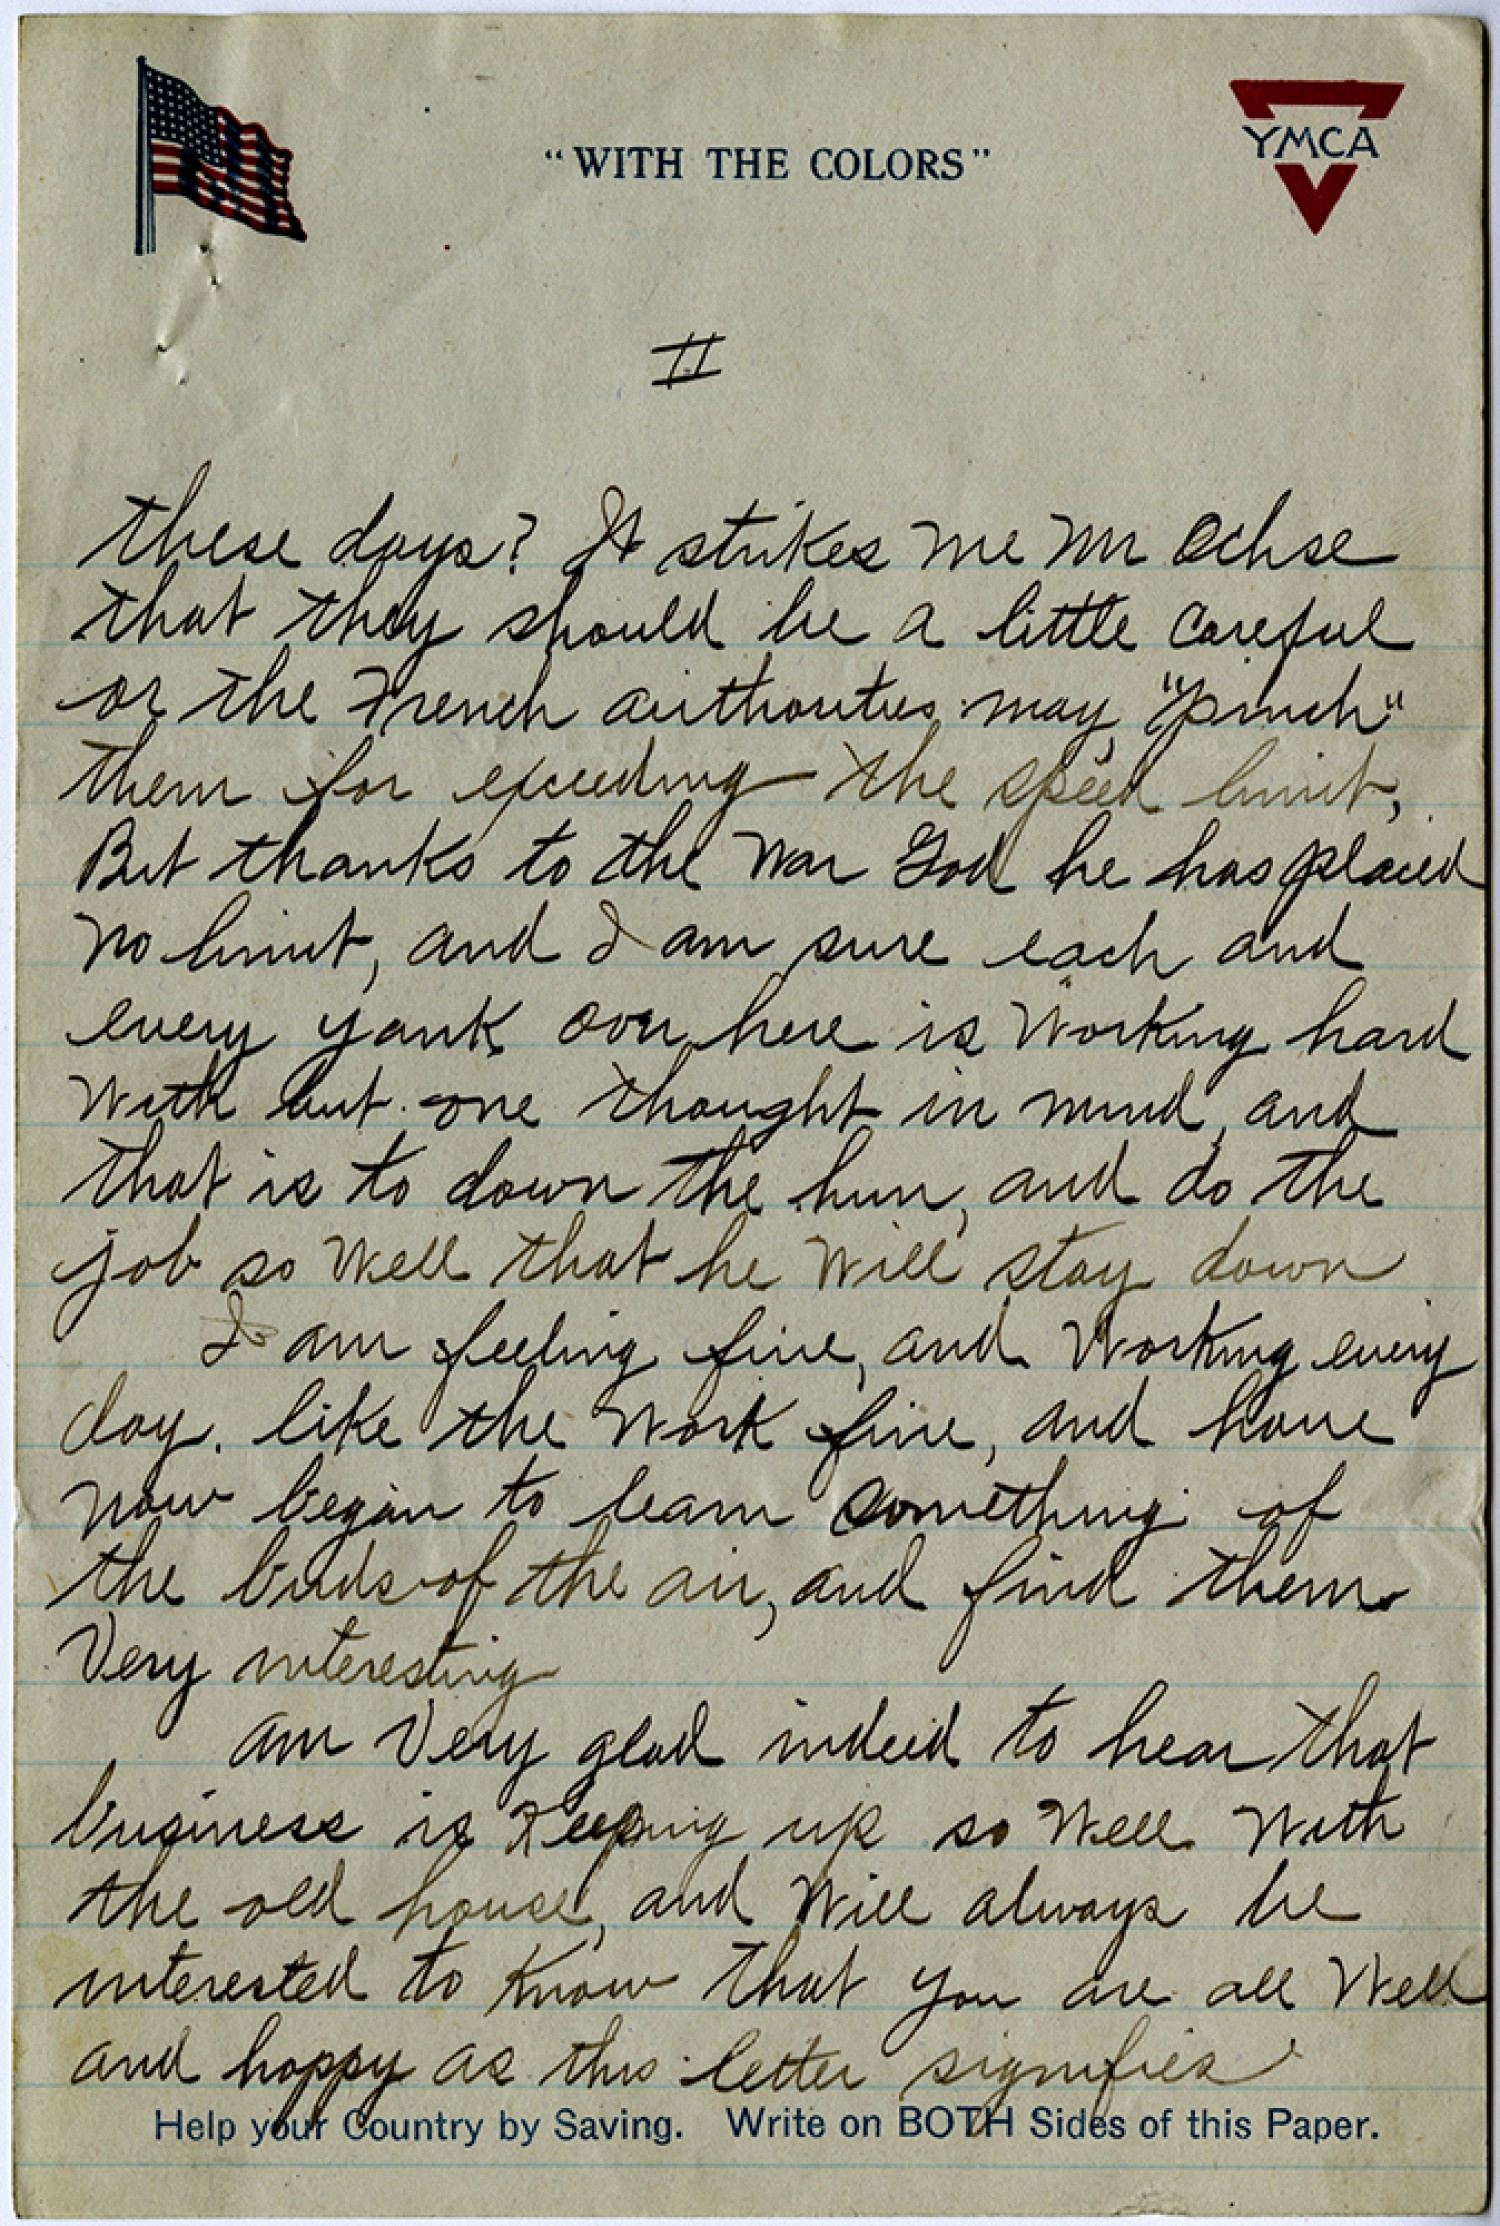 "WITH THE COLORS"
YMCA
II
these days? It strikes me Mr Ochse
that they should be a little careful
or the French authorities may "pinch"
them for exceeding the speed limit,
But thanks to the War God he has placed
no limit, and I am sure each and
every yank over here is Working hard
With but one thought in mind, and
that is to down the hun, and do the
job so Well that he Will stay down
I am feeling fine, and Working every
day. like the Work fine, and have
now began to learn something of
the birds of the air, and find them
Very interesting
am Very glad indeed to hear that
business is Keeping up so Well With
the old house, and Will always be
interested to Know that you are all Well
and happy as this letter signifies
Help your Country by Saving. Write on BOTH Sides of this Paper.